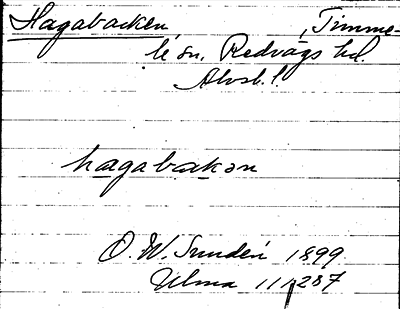 Hagabacken, Timme-
le sn, Redvägs hd.
Älvsb. l.
hagabakən
O. W. Sundén 1899
Ulma 111,287